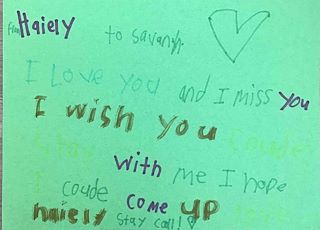 from Haiely to savanah
I Love you and I miss you
I wish you Coude
Stay with me I hope
I coude come up there
haiely Stay call!